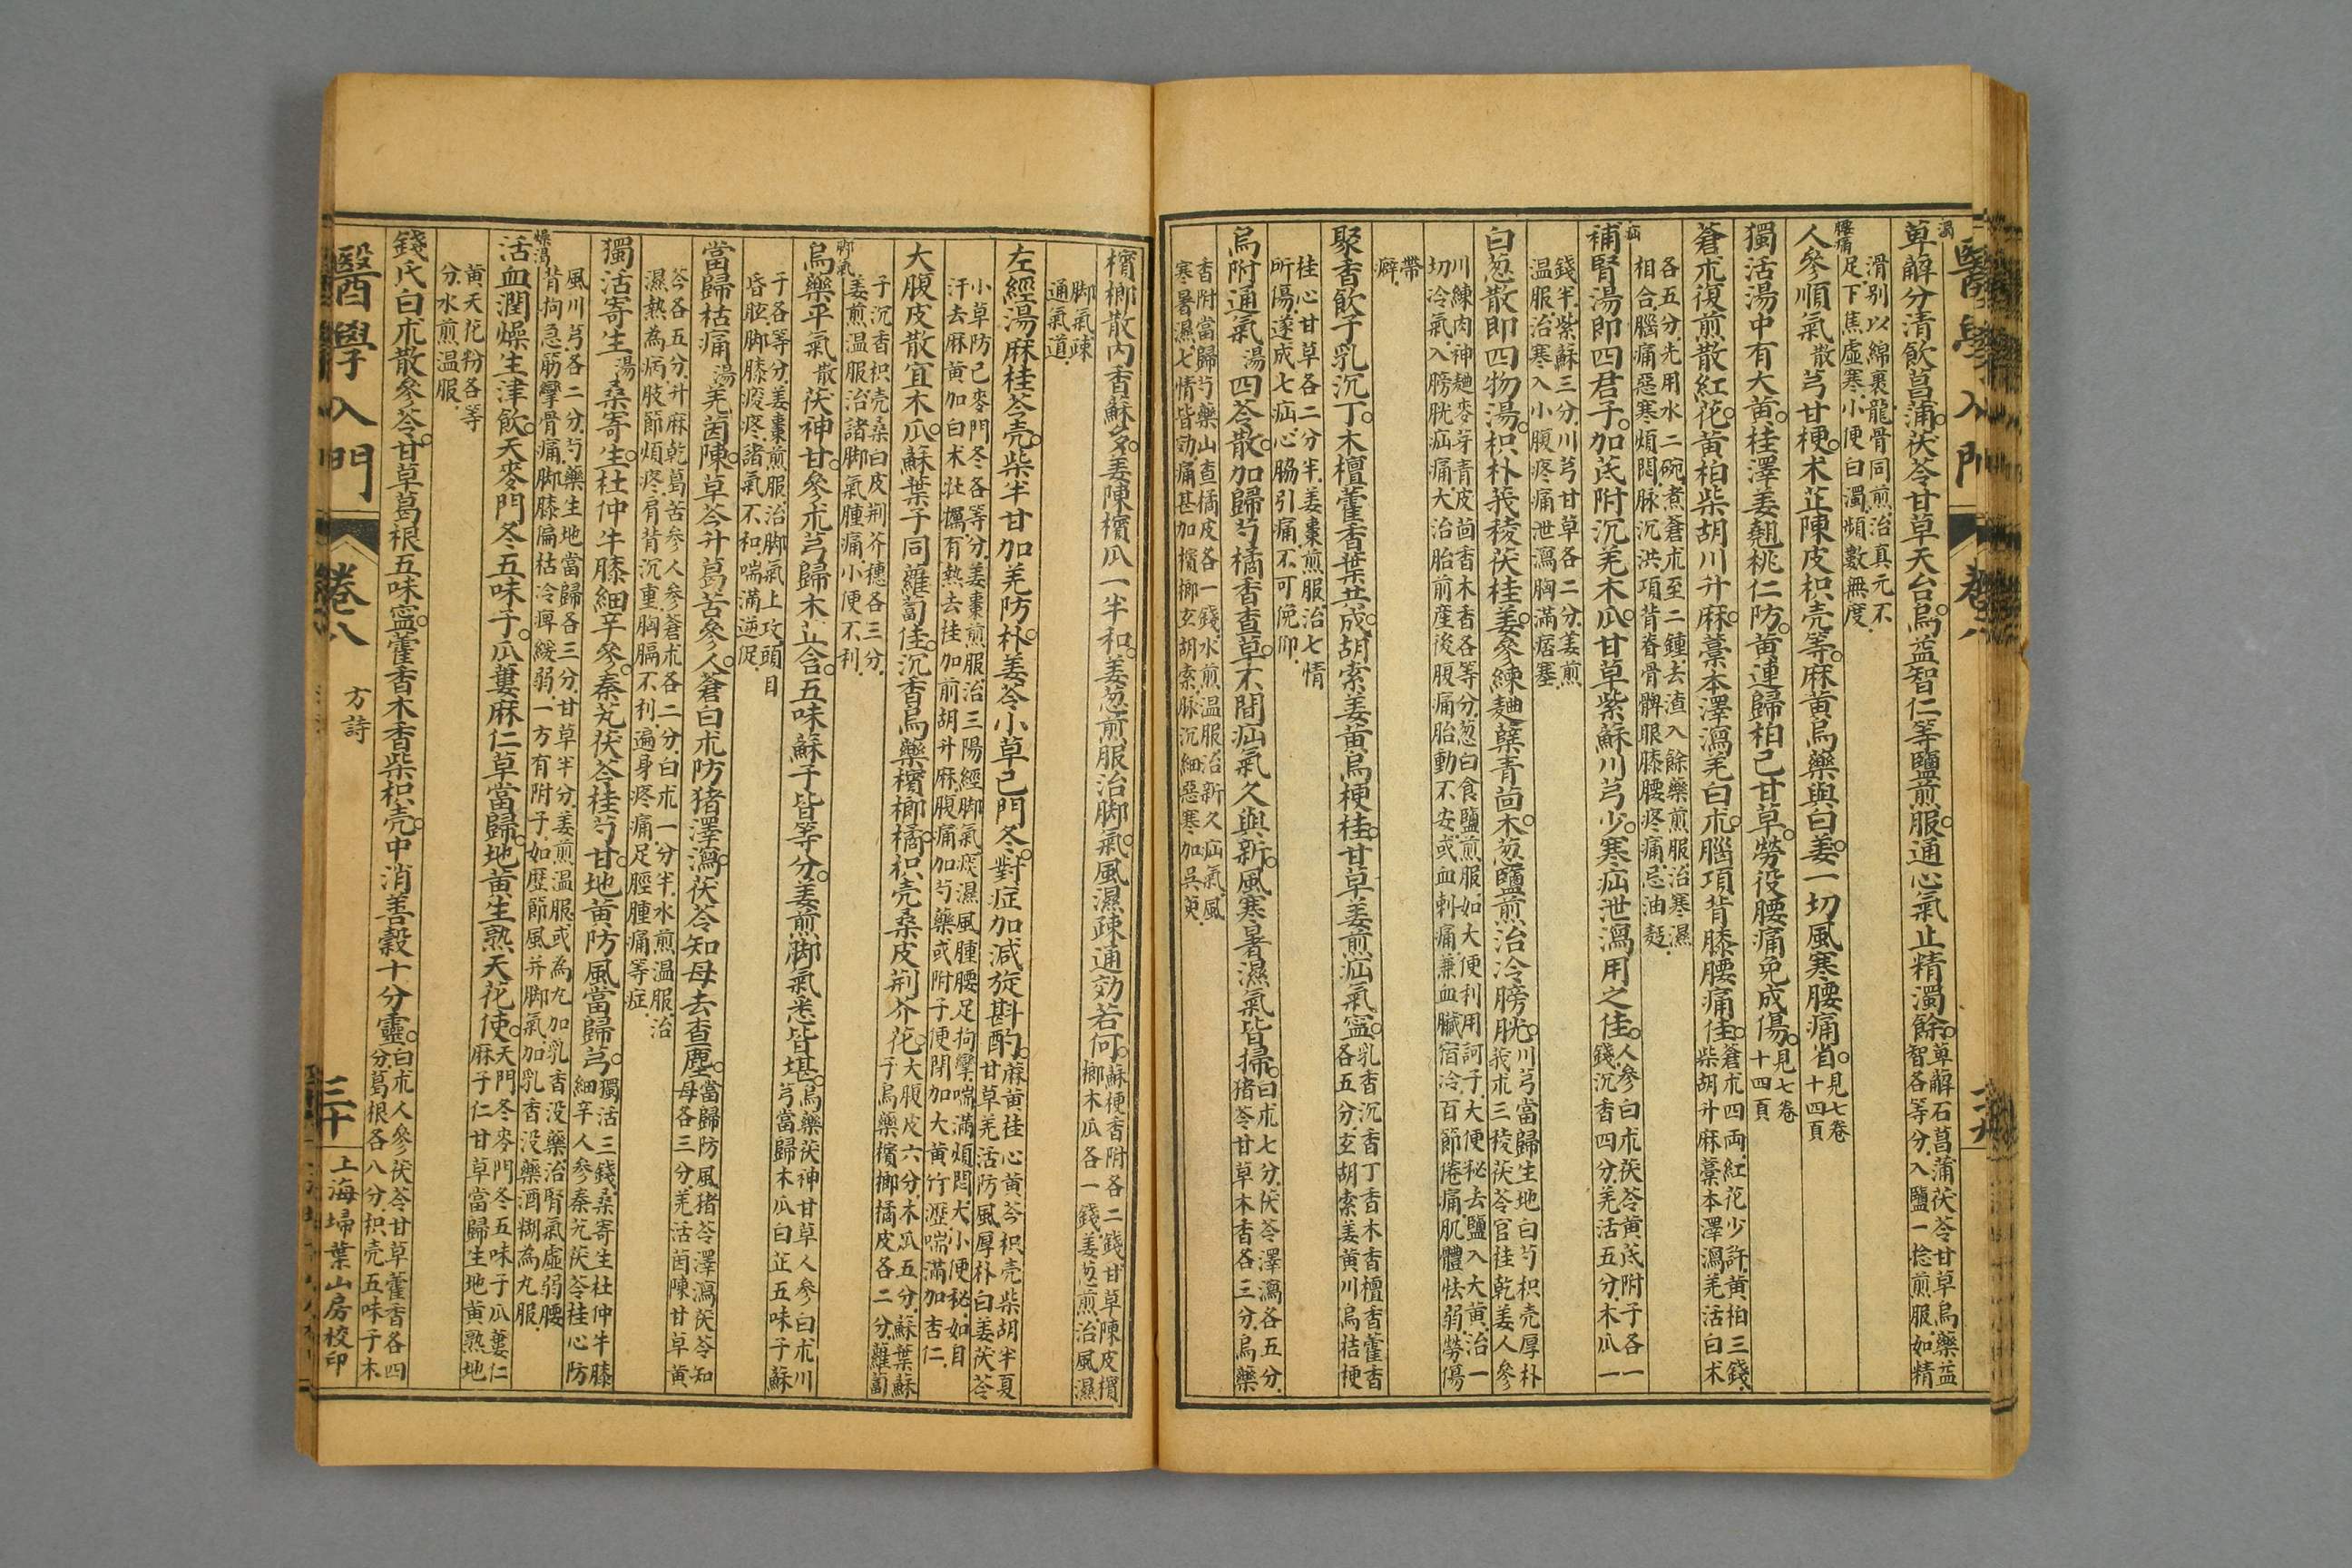 醫學入門
卷八
濁
萆薢分清飲菖蒲茯苓甘草天台烏益智仁等鹽煎服通心氣止精濁餘
萆薢石菖蒲茯苓甘草烏藥益
智各等分入鹽一捻煎服如精
滑別以綿裹龍骨同煎治真元不
足下焦虛寒小便白濁頻數無度
腰痛
人參順氣散芎甘梗术芷陳皮枳壳等麻黄烏藥與白姜一切風寒腰痛省
見七卷
十四頁
獨活湯中有大黄桂澤姜翹桃仁防黄連歸柏己甘草勞役腰痛免成傷
見七卷
十四頁
蒼朮復煎散紅花黄柏柴胡川升麻藁本澤瀉羌白朮腦項背膝腰痛佳
蒼朮四両紅花少許黄柏三錢
柴胡升麻藁本澤瀉羌活白术
各五分先用水二碗煮蒼朮至二鍾去渣入餘藥煎服治寒濕
相合腦痛惡寒煩悶脉沉洪項背脊骨髀眼膝腰疼痛忌油麪
疝
補腎湯即四君子加芪附沉羌木瓜甘草紫蘇川芎少寒疝泄瀉用之佳
人參白朮茯苓黄芪附子各一
錢沉香四分羌活五分木瓜一
錢半紫蘇三分川芎甘草各二分姜煎
温服治寒入小腹疼痛泄瀉胸滿痞塞
白葱散即四物湯枳朴莪稜茯桂姜參練麯蘖青茴木葱鹽煎治冷膀胱
川芎當歸生地白芍枳壳厚朴
莪朮三稜茯苓官桂乾姜人參
川練肉神麯麥芽青皮茴香木香各等分葱白食鹽煎服如大便利用訶子大便秘去鹽入大黄治一
切冷氣入膀胱疝痛大治胎前產後腹痛胎動不安或血刺痛兼血臟宿冷百節倦痛肌體怯弱勞傷
帶
癖
聚香飲子乳沉丁木檀藿香葉共成胡索姜黄烏梗桂甘草姜煎疝氣寧
乳香沉香丁香木香檀香藿香
各五分玄胡索姜黄川烏桔梗
桂心甘草各二分半姜棗煎服治七情
所傷遂成七疝心脇引痛不可俛仰
烏附通氣湯四苓散加歸芍橘香查草不問疝氣久與新風寒暑濕氣皆掃
白朮七分茯苓澤瀉各五分
猪苓甘草木香各三分烏藥
香附當歸芍藥山查橘皮各一錢水煎温服治新久疝氣風
寒暑濕七情皆効痛甚加檳榔玄胡索脉沉細惡寒加吳萸
檳榔散内香蘇多姜陳檳瓜一半和姜葱煎服治脚氣風濕疎通効若何
蘇梗香附各二錢甘草陳皮檳
榔木瓜各一錢姜葱煎治風濕
脚氣疎
通氣道
左經湯麻桂苓壳柴半甘加羌防朴姜苓小草己門冬對症加減旋斟酌
麻黄桂心黄芩枳壳柴胡半夏
甘草羌活防風厚朴白姜茯苓
小草防己麥門冬各等分姜棗煎服治三陽經脚氣痰濕風腫腰足拘攣喘滿煩悶大小便秘如自
汗去麻黄加白术牡蠣有熱去桂加前胡升麻腹痛加芍藥或附子便閉加大黄竹瀝喘滿加杏仁
大腹皮散宜木瓜蘇葉子同蘿蔔佳沉香烏藥檳榔橘枳壳桑皮荆芥花
大腹皮六分木瓜五分蘇葉蘇
子烏藥檳榔橘皮各二分蘿蔔
子沉香枳壳桑白皮荆芥穗各三分
姜煎温服治諸脚氣腫痛小便不利
脚氣
烏藥平氣散茯神甘參朮芎歸木芷含五味蘇子皆等分姜煎脚氣悉皆堪
烏藥茯神甘草人參白朮川
芎當歸木瓜白芷五味子蘇
子各等分姜棗煎服治脚氣上攻頭目
昏眩脚膝痠疼諸氣不和喘滿逆促
當歸枯痛湯羌茵陳草芩升葛苦參人蒼白朮防猪澤瀉茯苓知母去查塵
當歸防風猪苓澤瀉茯苓知
母各三分羌活茵陳甘草黄
芩各五分升麻乾葛苦參人參蒼朮各二分白朮一分半水煎温服治
濕熱為病肢節煩疼肩背沉重胸膈不利遍身疼痛足脛腫痛等症
獨活寄生湯桑寄生杜仲牛膝細辛參秦艽茯苓桂芍甘地黄防風當歸芎
獨活三錢桑寄生杜仲牛膝
細辛人參秦艽茯苓桂心防
風川芎各二分芍藥生地當歸各三分甘草半分姜煎温服或為丸加乳香没藥治腎氣虛弱腰
背拘急筋攣骨痛脚膝偏枯冷痺緩弱一方有附子如歷節風并脚氣加乳香没藥酒糊為丸服
燥渴
活血潤燥生津飲天麥門冬五味子瓜蔞麻仁草當歸地黄生熟天花使
天門冬麥門冬五味子瓜蔞仁
麻子仁甘草當歸生地黄熟地
黄天花粉各等
分水煎温服
錢氏白朮散參苓甘草葛根五味寧藿香木香柴枳壳中消善榖十分靈
白朮人參茯苓甘草藿香各四
分葛根各八分枳壳五味子木
醫學入門
卷八
方詩
三十
上海埽葉山房校印